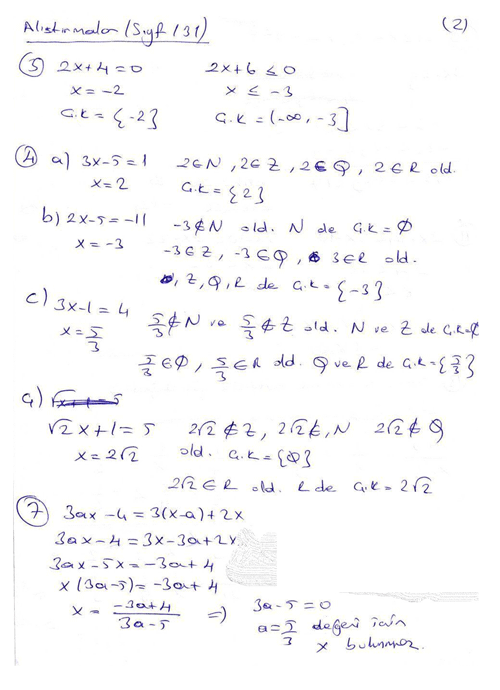 Alıştırmalar (Sayf 131) (2)
③ 2x+4=0 2x+6 ≤ 0
x=-2 x ≤ -3
Ç.K={-2} Ç.K=(-∞, -3]
④ a) 3x-5=1 2∈N, 2∈Z, 2∈Q, 2∈R old.
x=2 Ç.K={2}
b) 2x-5=-11 -3∉N old. N de Ç.K=∅
x=-3 -3∈Z, -3∈Q, 3∈R old.
, Z, Q, R de Ç.K={-3}
c) 3x-1=4 5/3∉N ve 5/3∉Z old. N ve Z de Ç.K=∅
x=5/3 5/3∈Q, 5/3∈R old. Q ve R de Ç.K={5/3}
Ç)
√2x+1=5 2√2∉Z, 2√2∉, N 2√2∉Q
x=2√2 old. Ç.K={∅}
2√2∈R old. R de Ç.K=2√2
⑦ 3ax-4=3(x-a)+2x
3ax-4=3x-3a+2x
3ax-5x=-3a+4
x(3a-5)=-3a+4
x=(-3a+4)/(3a-5) ⇒ 3a-5=0
a=5/3 değeri için
x bulunmaz.